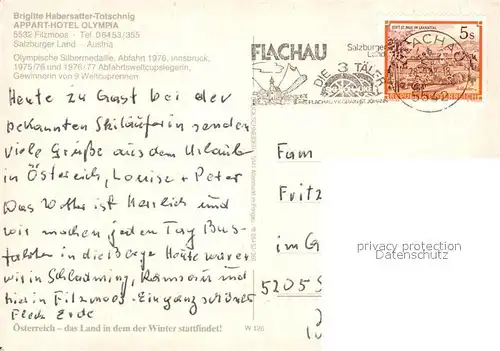 Brigitte Habersatter-Totschnig
APPART-HOTEL OLYMPIA
5532 Filzmoos · Tel. 06453/355
Salzburger Land · Austria
Olympische Silbermedaille, Abfahrt 1976, Innsbruck,
1975/76 und 1976/77 Abfahrtsweltcupsiegerin,
Gewinnerin von 9 Weltcuprennen
Heute zu Gast bei der
bekannten Skiläuferin senden
viele Grüße aus dem Urlaub
in Österreich, Louise + Peter
Das Wetter ist herrlich und
wir machen jeden Tag Bus-
fahrten in die Berge Heute waren
wir in Schladming, Ramsau und
hier in Filzmoos. Ein ganz schöner
Fleck Erde
Österreich – das Land in dem der Winter stattfindet!
W 126
FLACHAU
Salzburger
Land
DIE 3 TÄLER
FLACHAU WAGRAIN ST. JOHANN
FLACHAU
5542
5 S
Fam
Fritz
im G
5205
privacy protection